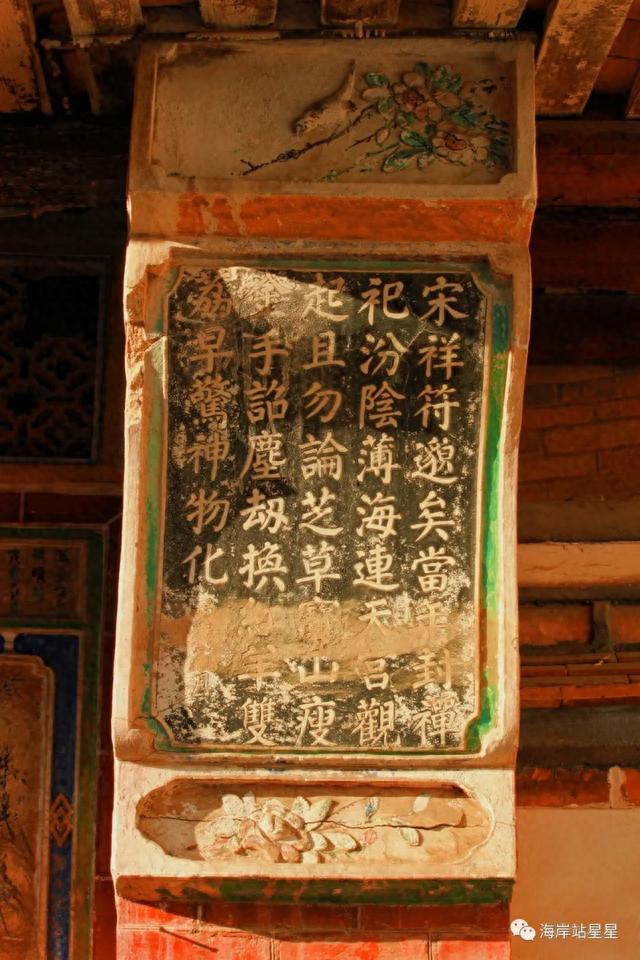 宋祥符邈矣當年封禪
祀汾陰薄海連天宮觀
起且勿論芝草寶山瘦
金手詔塵刼換紅羊雙
荔早驚神物化
海岸站星星